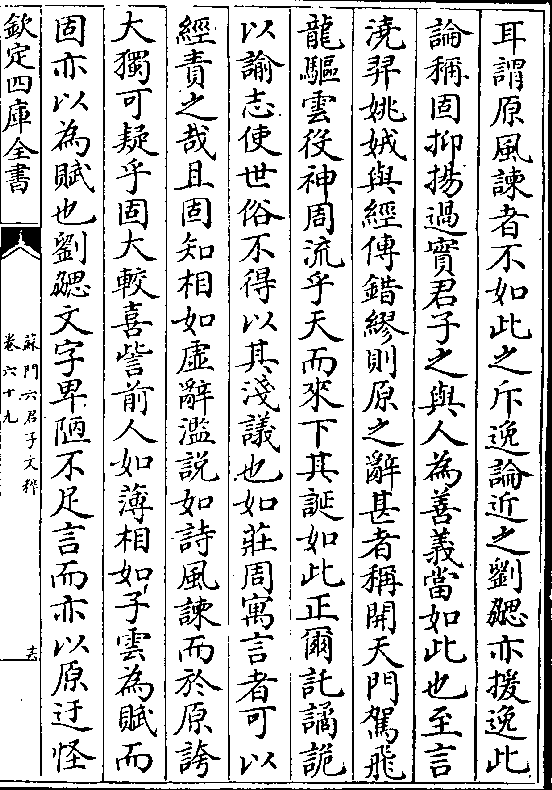 耳謂原風諫者不如此之斥逸論近之劉勰亦援逸此
論稱固抑揚過實君子之與人為善義當如此也至言
澆羿姚娀與經傳錯繆則原之辭甚者稱開天門駕飛
龍驅雲役神周流乎天而來下其誕如此正爾託譎詭
以諭志使世俗不得以其淺議也如莊周寓言者可以
經責之哉且固知相如虛辭濫説如詩風諫而於原誇
大獨可疑乎固大較喜訾前人如薄相如子雲為賦而
固亦以為賦也劉勰文字卑陋不足言而亦以原迂怪
欽定四庫全書
蘇門六君子文粹
卷六十九